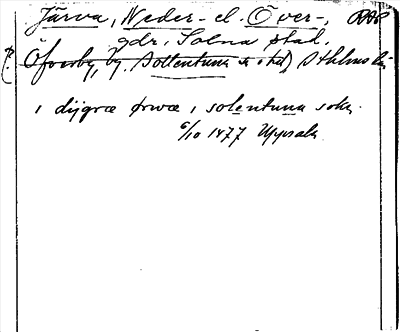 Järva, Neder- el. Över-, RAP
gdr, Solna stad,
Öfverby, by, Sollentuna sn o hd, Sthlms län
i dijgræ ørwæ i solentuna sokn.
6/10 1477 Uppsala